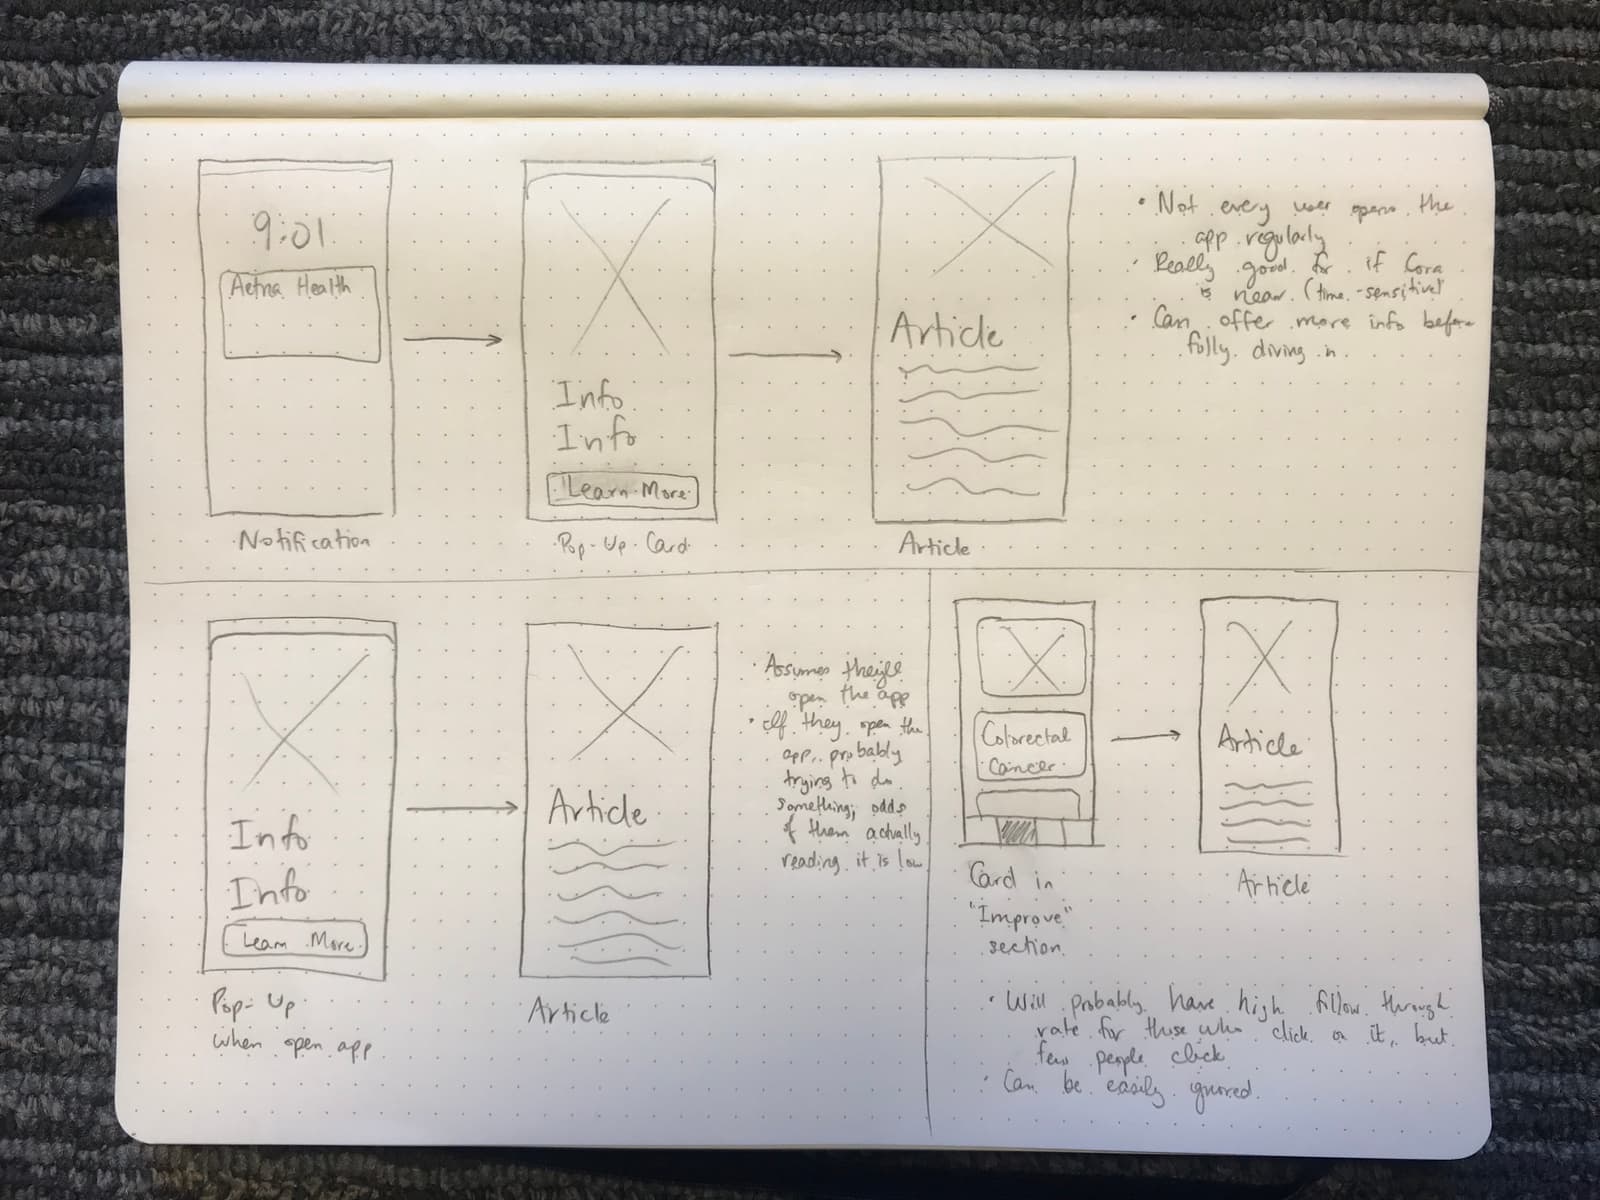 9:01
Aetna Health
Notification
Info
Info
Learn More
Pop-Up Card
Article
Article
• Not every user opens the
app regularly
• Really good for if Cora
is near (time-sensitive)
• Can offer more info before
fully diving in
Info
Info
Learn More
Pop-Up
when open app
Article
Article
• Assumes they'll
open the app
• If they open the
app, probably
trying to do
something; odds
of them actually
reading it is low
Colorectal
Cancer
Card in
"Improve"
section
Article
Article
• Will probably have high follow through
rate for those who click on it, but
few people click
• Can be easily ignored